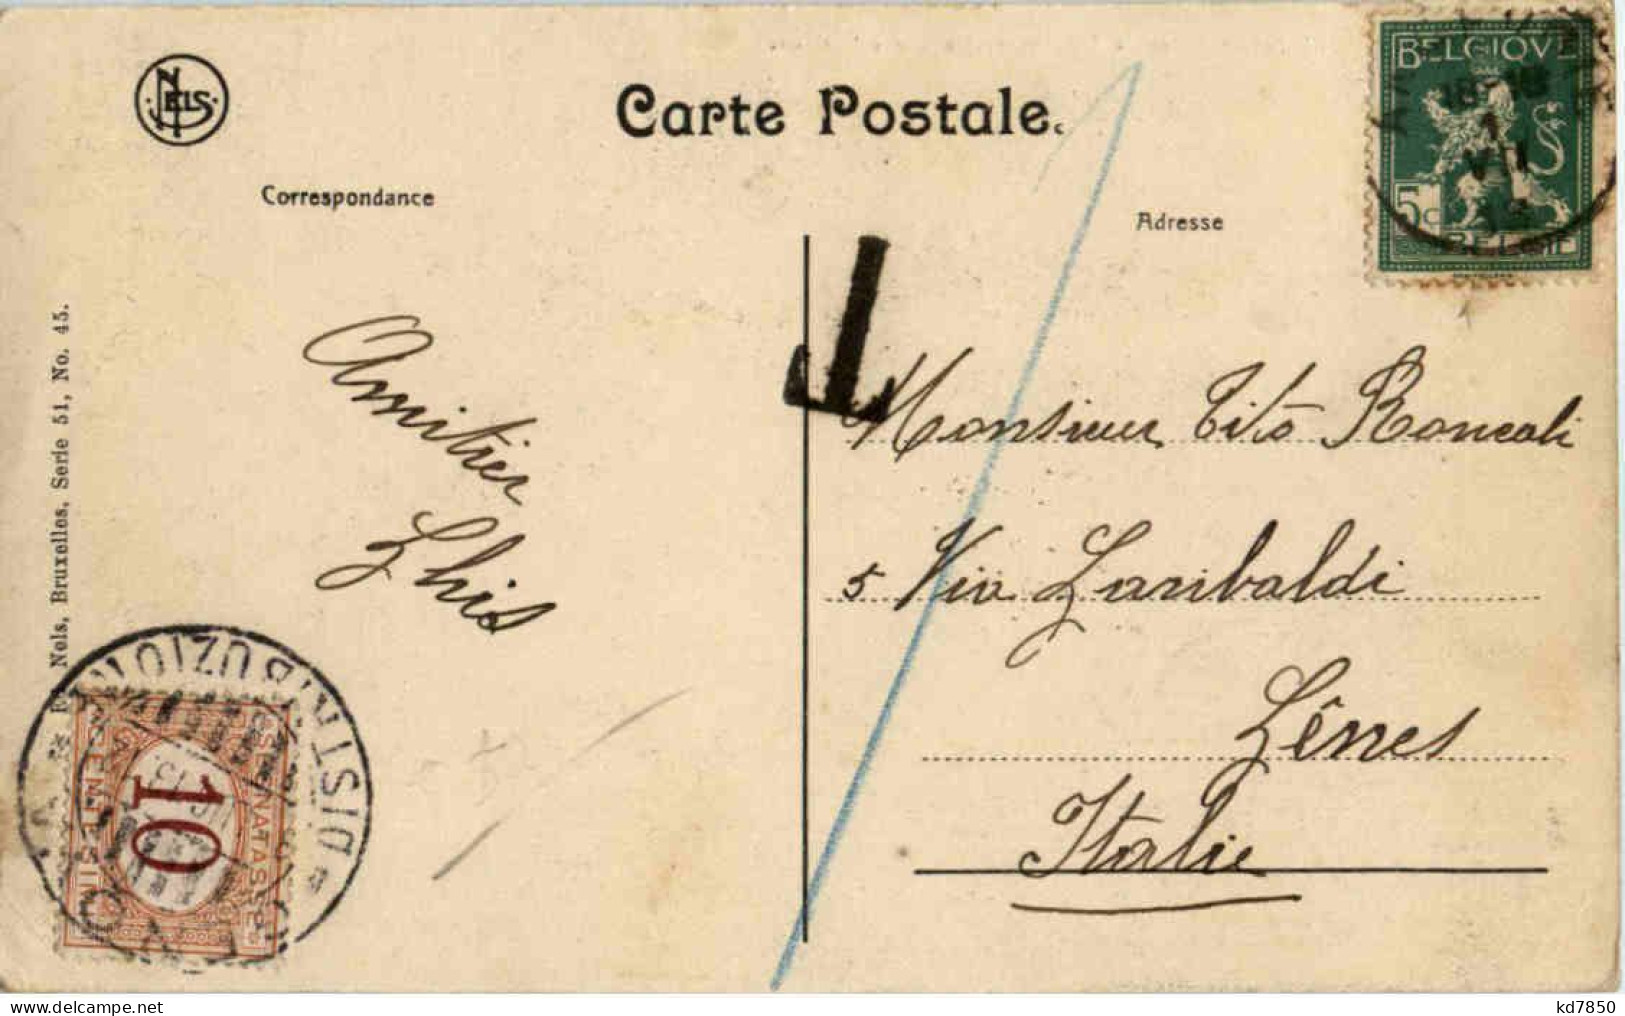 NELS
Carte Postale
Correspondance
Adresse
BELGIQUE
5c
BELGIE
1
VII
13
T
Nels, Bruxelles, Serie 51, No. 45.
Amitiés
Monsieur Tito Roncali
5 Via Garibaldi
Gênes
Italie
DISTRIBUZIONE
GENOVA
SEGNATASSE
10
CENTESIMI
kd7850